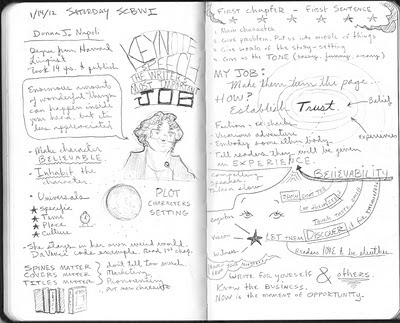 1/14/12 SATURDAY SCBWI
Donna Jo Napoli
Degree from Harvard
Linguist
Took 14 yrs. to publish
KEYNOTE
SPEECH
THE WRITER'S
MOST IMPORTANT
JOB
Enormous amount
of wonderful things
can happen inside
your head but it's
less appreciated
- Make character
BELIEVABLE
- Inhabit the
character.
• Universals
★ specific
★ Time
★ Place
★ Culture
PLOT
CHARACTERS
SETTING
- She stays in her own weird world.
DaVinci code example. Read 1st chap.
SPINES MATTER
COVERS MATTER
TITLES MATTER
don't tell too much
Marketing
Pronouncing
put own character
First chapter - First Sentence
Main character
Give problem. Put us into middle of things
Give world of the story - setting
Give us the TONE (scary, funny, angry)
MY JOB:
Make them turn the page...
HOW?
Establish Trust.
Belief
experiences
Vicarious adventure
Embody some other body
Tell readers they will be given
an EXPERIENCE.
Compelling
Speaker
BELIEVABILITY
Vision
Witness
LET THEM DISCOVER it for themselves
Readers LOVE to be
WRITE FOR YOURSELF & others.
KNOW THE BUSINESS.
NOW IS THE MOMENT OF OPPORTUNITY.